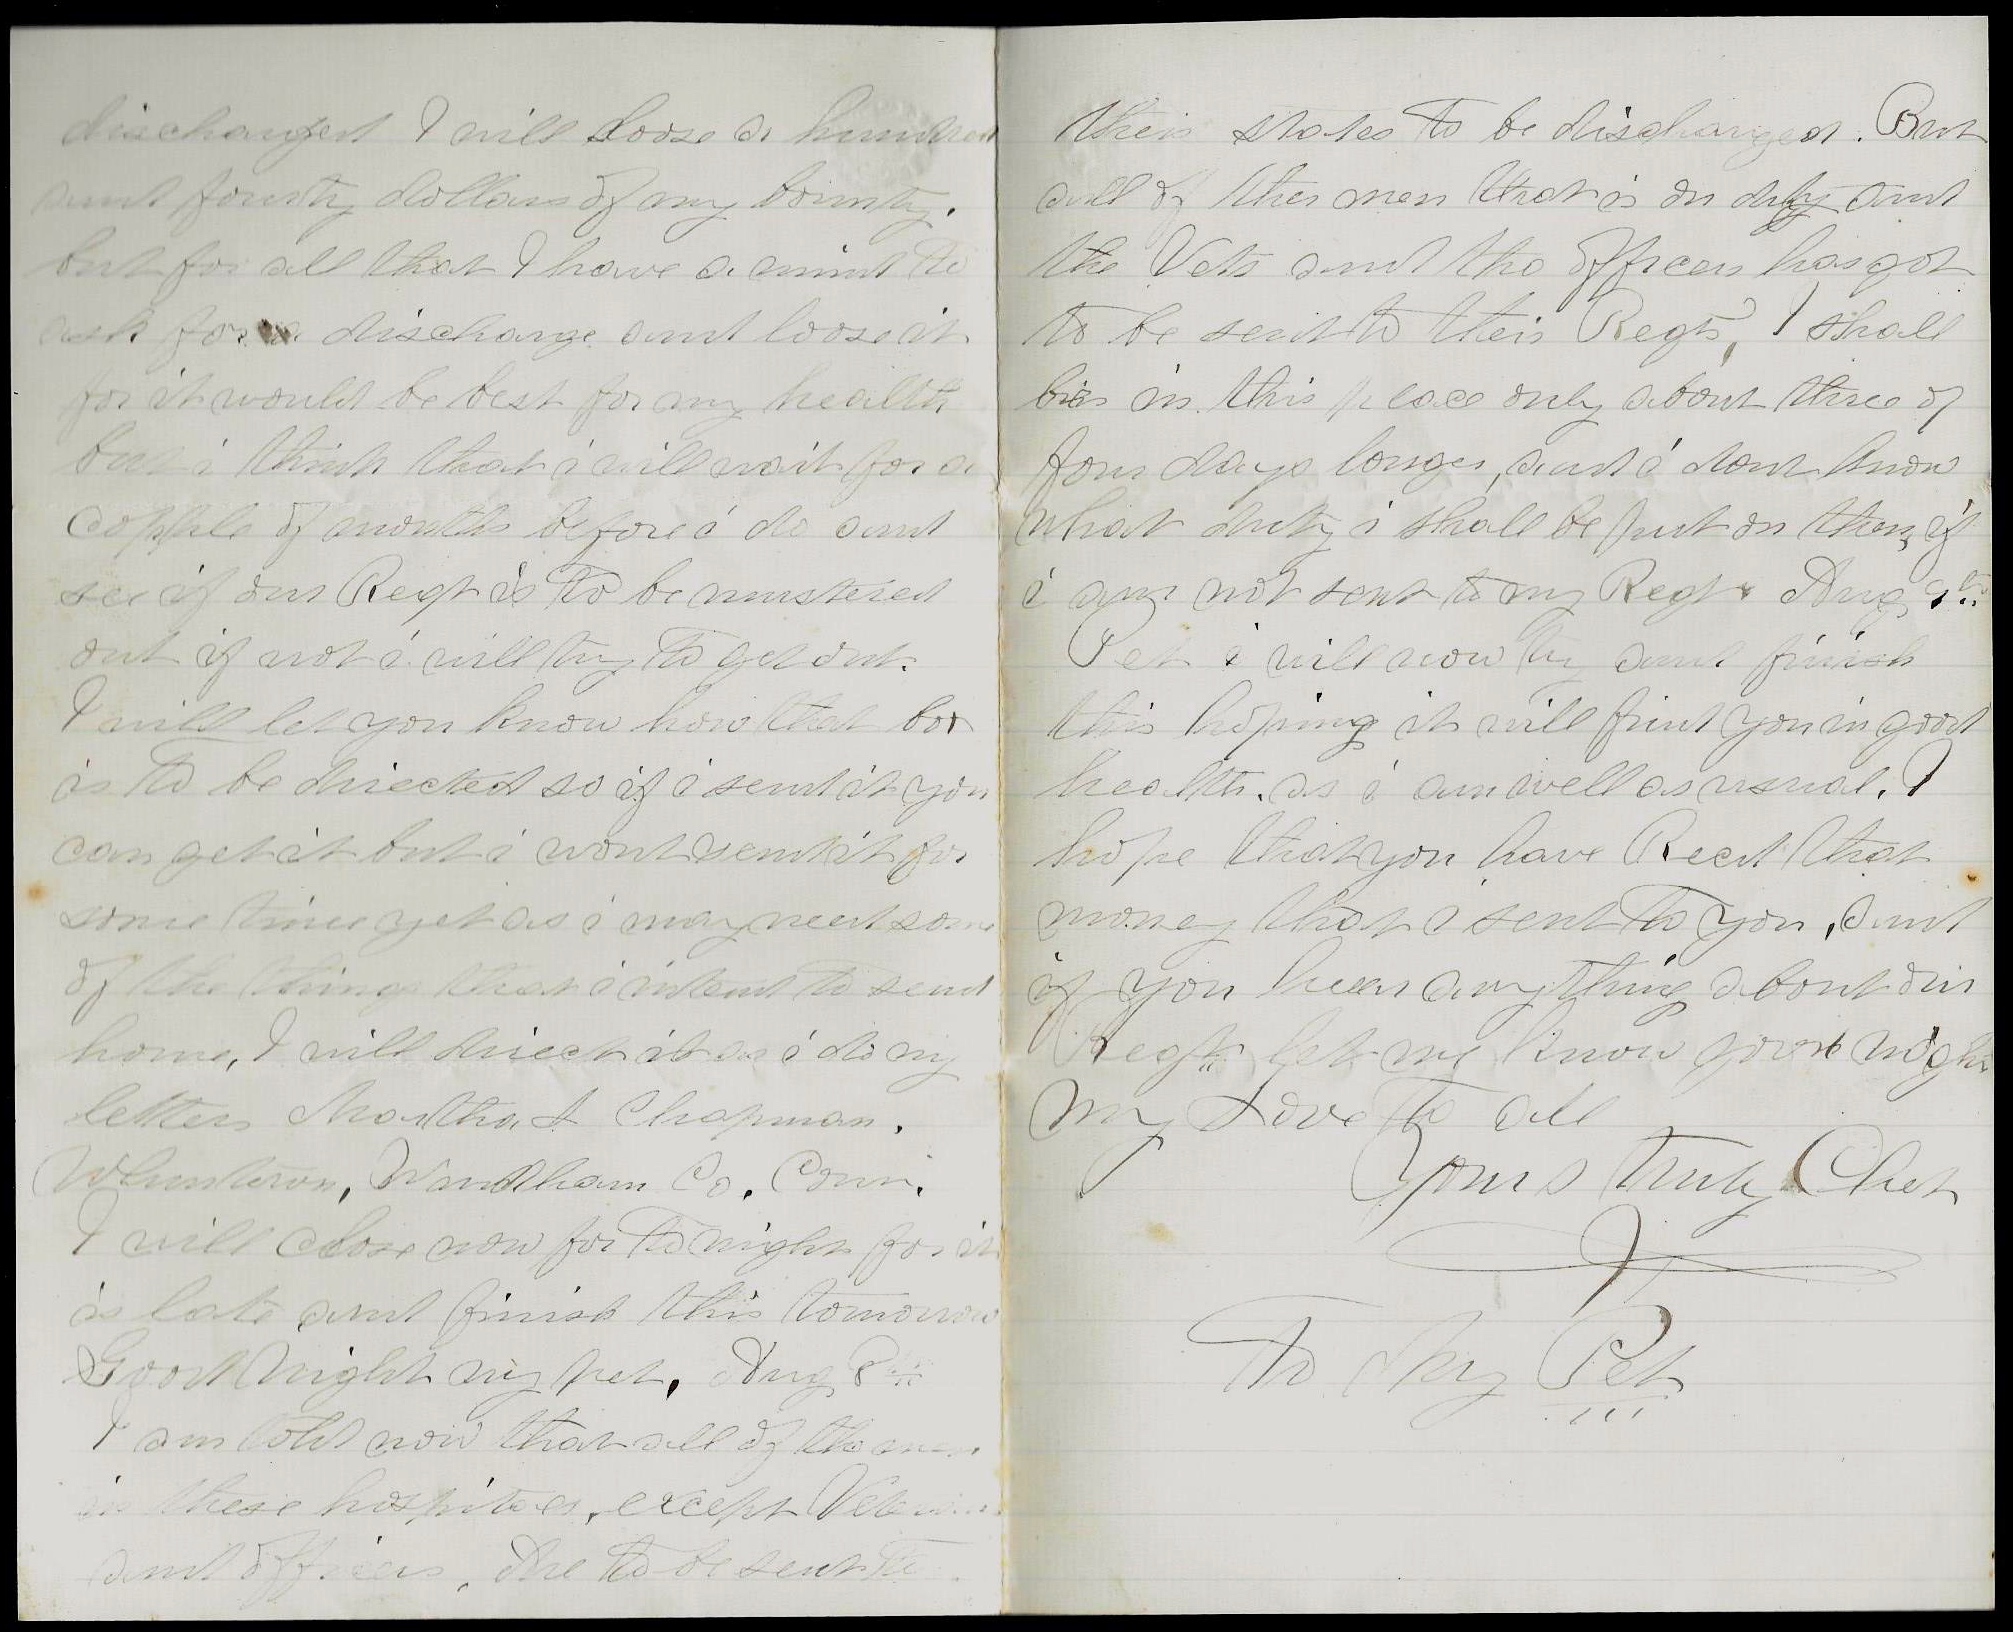 discharged I will loose a hundred
and fourty dollars of my bounty.
but for all that I have a mind to
ask for a discharge and loose it
for it would be best for my health
but i think that i will wait for a
copple of months before i do and
see if our Regt is to be mustered
out if not i will try to get out.
I will let you know how that box
is to be directed so if i send it you
can get it but i wont send it for
some time yet as i may need some
of the things that i intend to send
home, I will direct it as i do my
letters Martha A Chapman.
Windham Co. Conn.
I will close now for to night for it
is late and finish this tomorrow
Good night my pet, Aug 8th
I am told now that all of the men
in these hospitals, except Veterans
and officers, Are to be sent to
their states to be discharged. But
all of the men that is on duty and
the Vets and the officers has got
to be sent to their Regts, I shall
be in this place only about three or
four days longer, and i dont know
what duty i shall be put on then, if
i am not sent to my Regt. Aug 9th
Pet i will now try and finish
this hoping it will find you in good
health. as i am well as usual. I
hope that you have Recd that
money that i sent to you, and
if you hear anything about our
Regt let me know good night
My Love to all
Yours truly Chet
To My Pet